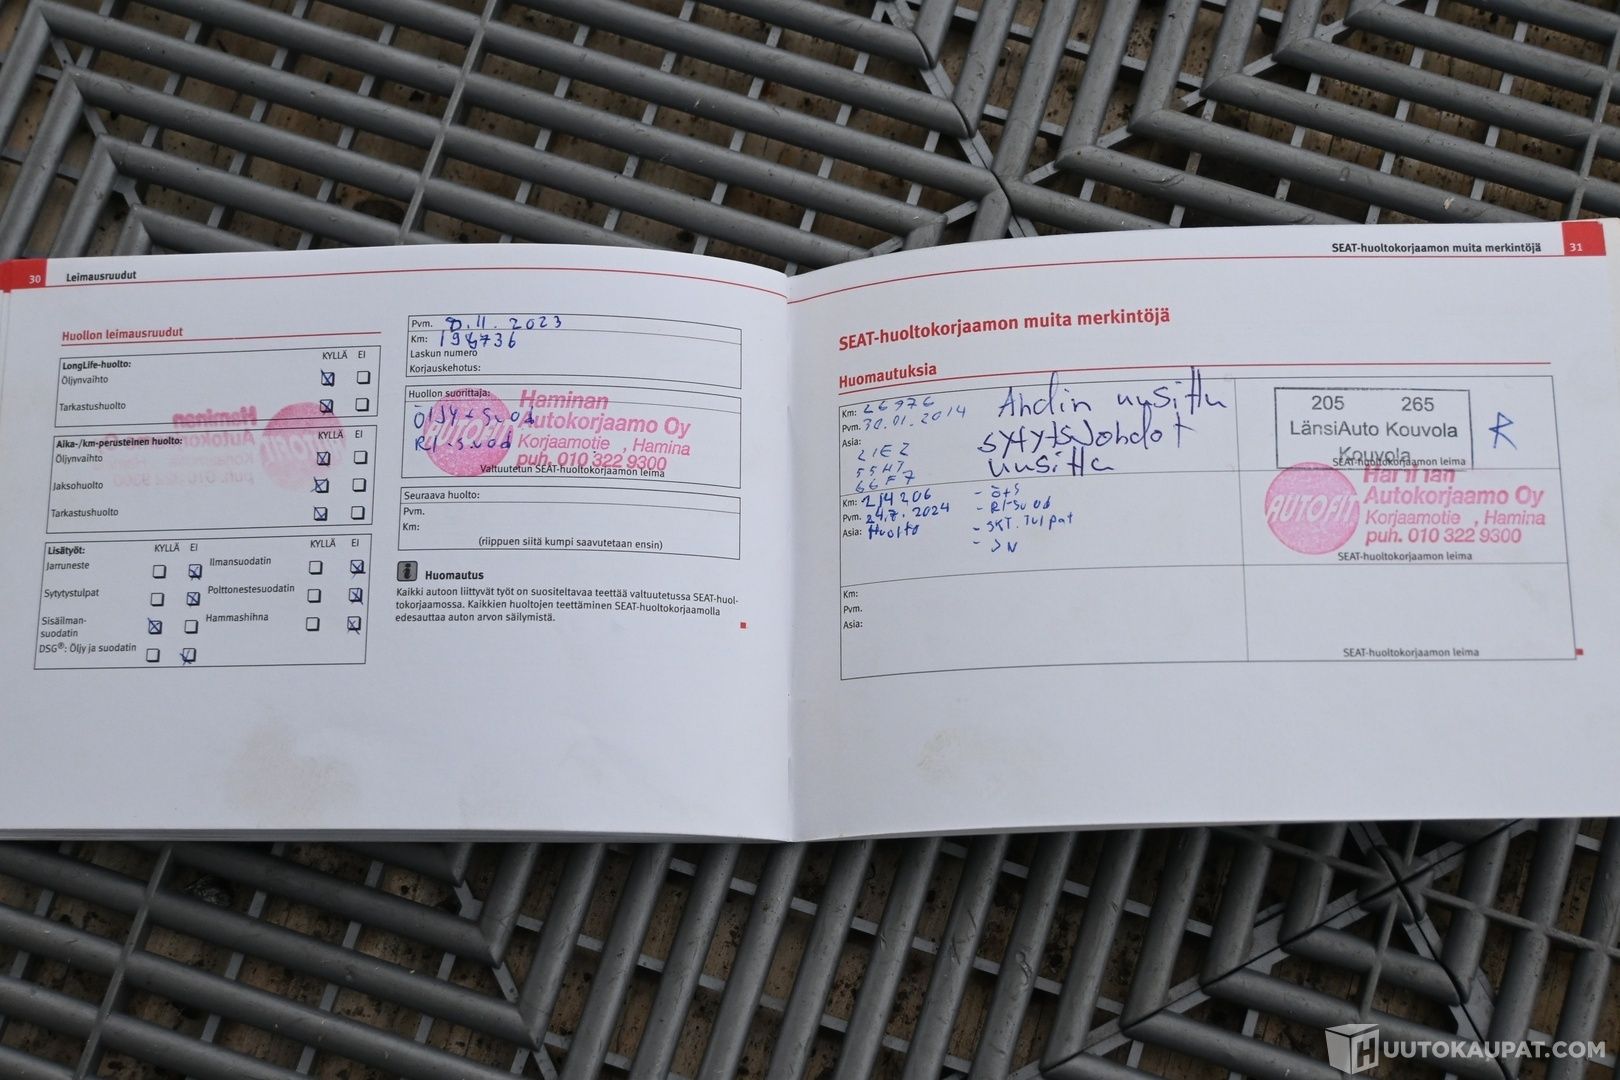 30 Leimausruudut
Huollon leimausruudut
KYLLÄ EI
LongLife-huolto:
Öljynvaihto
Tarkastushuolto
KYLLÄ EI
Aika-/km-perusteinen huolto:
Öljynvaihto
Jaksohuolto
Tarkastushuolto
Lisätyöt: KYLLÄ EI KYLLÄ EI
Jarruneste Ilmansuodatin
Sytytystulpat Polttonestesuodatin
Sisäilman-
suodatin Hammashihna
DSG®: Öljy ja suodatin
Pvm. 8.11.2023
Km:
Laskun numero
Korjauskehotus:
Huollon suorittaja:
Öljy + suod
RI-suod
AUTOFIT
Haminan
Autokorjaamo Oy
Korjaamotie , Hamina
puh. 010 322 9300
Valtuutetun SEAT-huoltokorjaamon leima
Seuraava huolto:
Pvm.
Km:
(riippuen siitä kumpi saavutetaan ensin)
Huomautus
Kaikki autoon liittyvät työt on suositeltavaa teettää valtuutetussa SEAT-huol-
tokorjaamossa. Kaikkien huoltojen teettäminen SEAT-huoltokorjaamolla
edesauttaa auton arvon säilymistä.
SEAT-huoltokorjaamon muita merkintöjä 31
SEAT-huoltokorjaamon muita merkintöjä
Huomautuksia
Km: 26976
Pvm. 30.01.2014
Asia:
21E2
55H7
66F7
Ahdin uusittu
sytytysjohdot
uusittu
205 265
LänsiAuto Kouvola
Kouvola
R
SEAT-huoltokorjaamon leima
Km: 214206
Pvm. 24.7.2024
Asia: Huolto
- Ö+S
- RI-suod
- SKT. Tulpat
- JN
AUTOFIT
Haminan
Autokorjaamo Oy
Korjaamotie , Hamina
puh. 010 322 9300
SEAT-huoltokorjaamon leima
Km:
Pvm.
Asia:
SEAT-huoltokorjaamon leima
HUUTOKAUPAT.COM